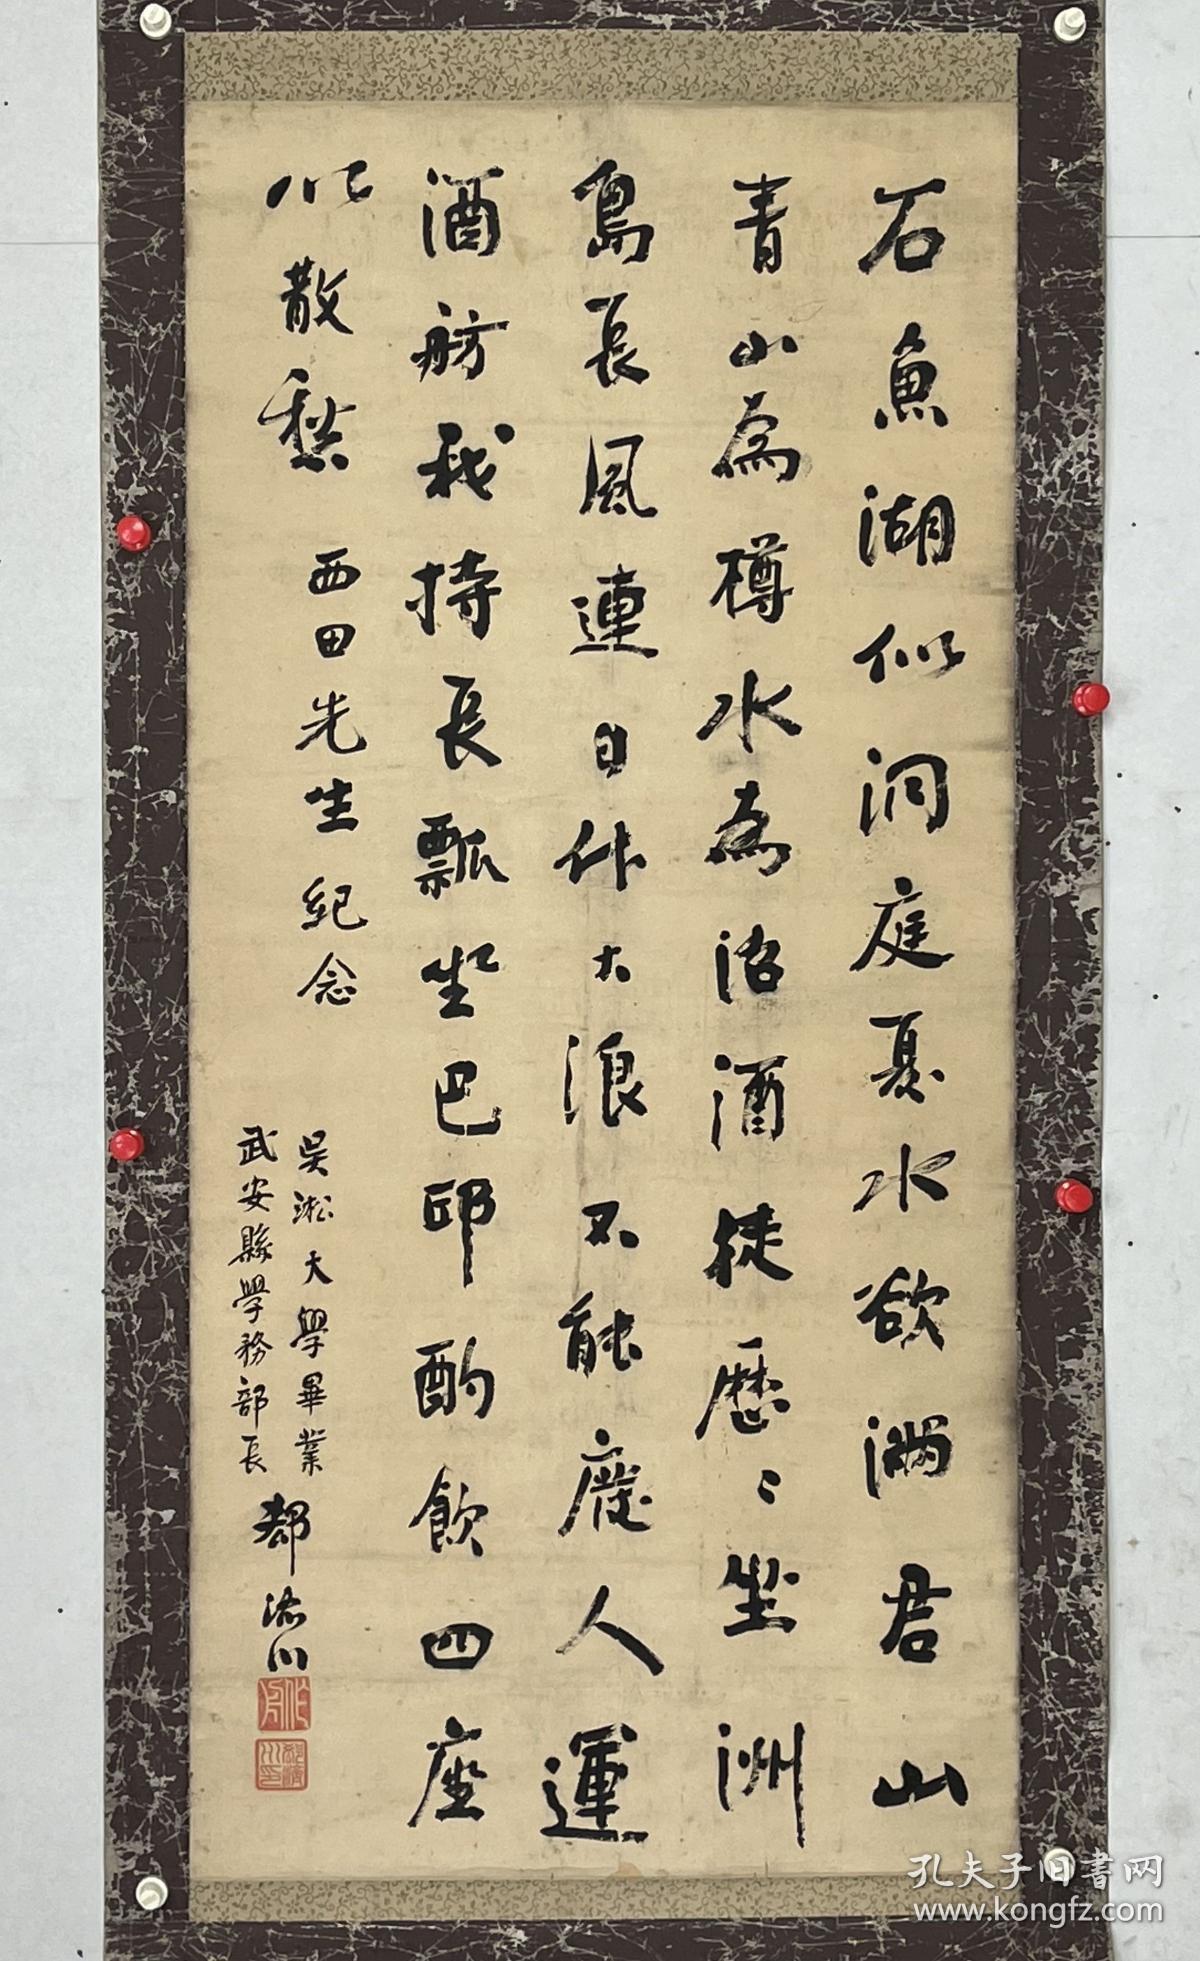 石魚湖似洞庭夏水欲滿君山
青山為樽水為沼酒徒歷〻坐洲
島長風連日作大浪不能廢人運
酒舫我持長瓢坐巴邱酌飲四座
以散愁 西田先生紀念
吳淞大學畢業
武安縣學務部長 川
孔夫子旧書网
www.kongfz.com